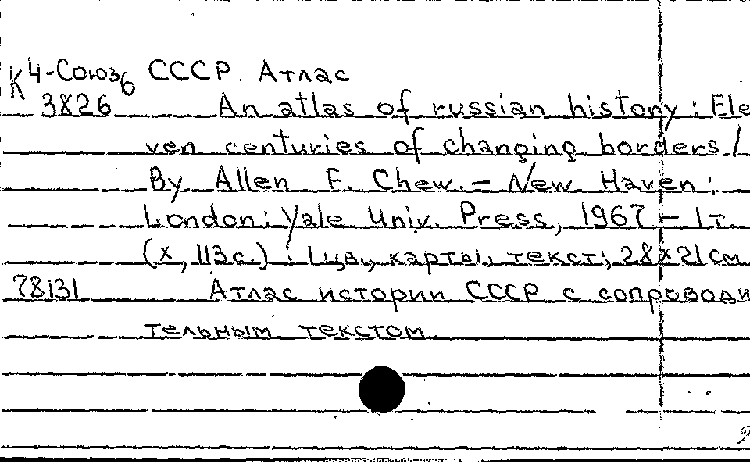 К 4-Союз6 СССР. Атлас
3826 An atlas of russian history: Ele
ven centuries of changing borders /
By Allen F. Chew. – New Haven;
London: Yale Univ. Press, 1967 – 1т
(x, 113с.): цв., карты, текст; 28x21см
78131 Атлас истории СССР с сопроводи
тельным текстом